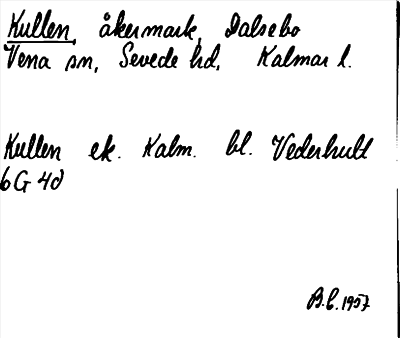 Kullen, åkermark, Dalsebo
Vena sn, Sevede hd, Kalmar l.
Kullen ek. Kalm. bl. Vederhult
6 G 4d
B.C. 1957